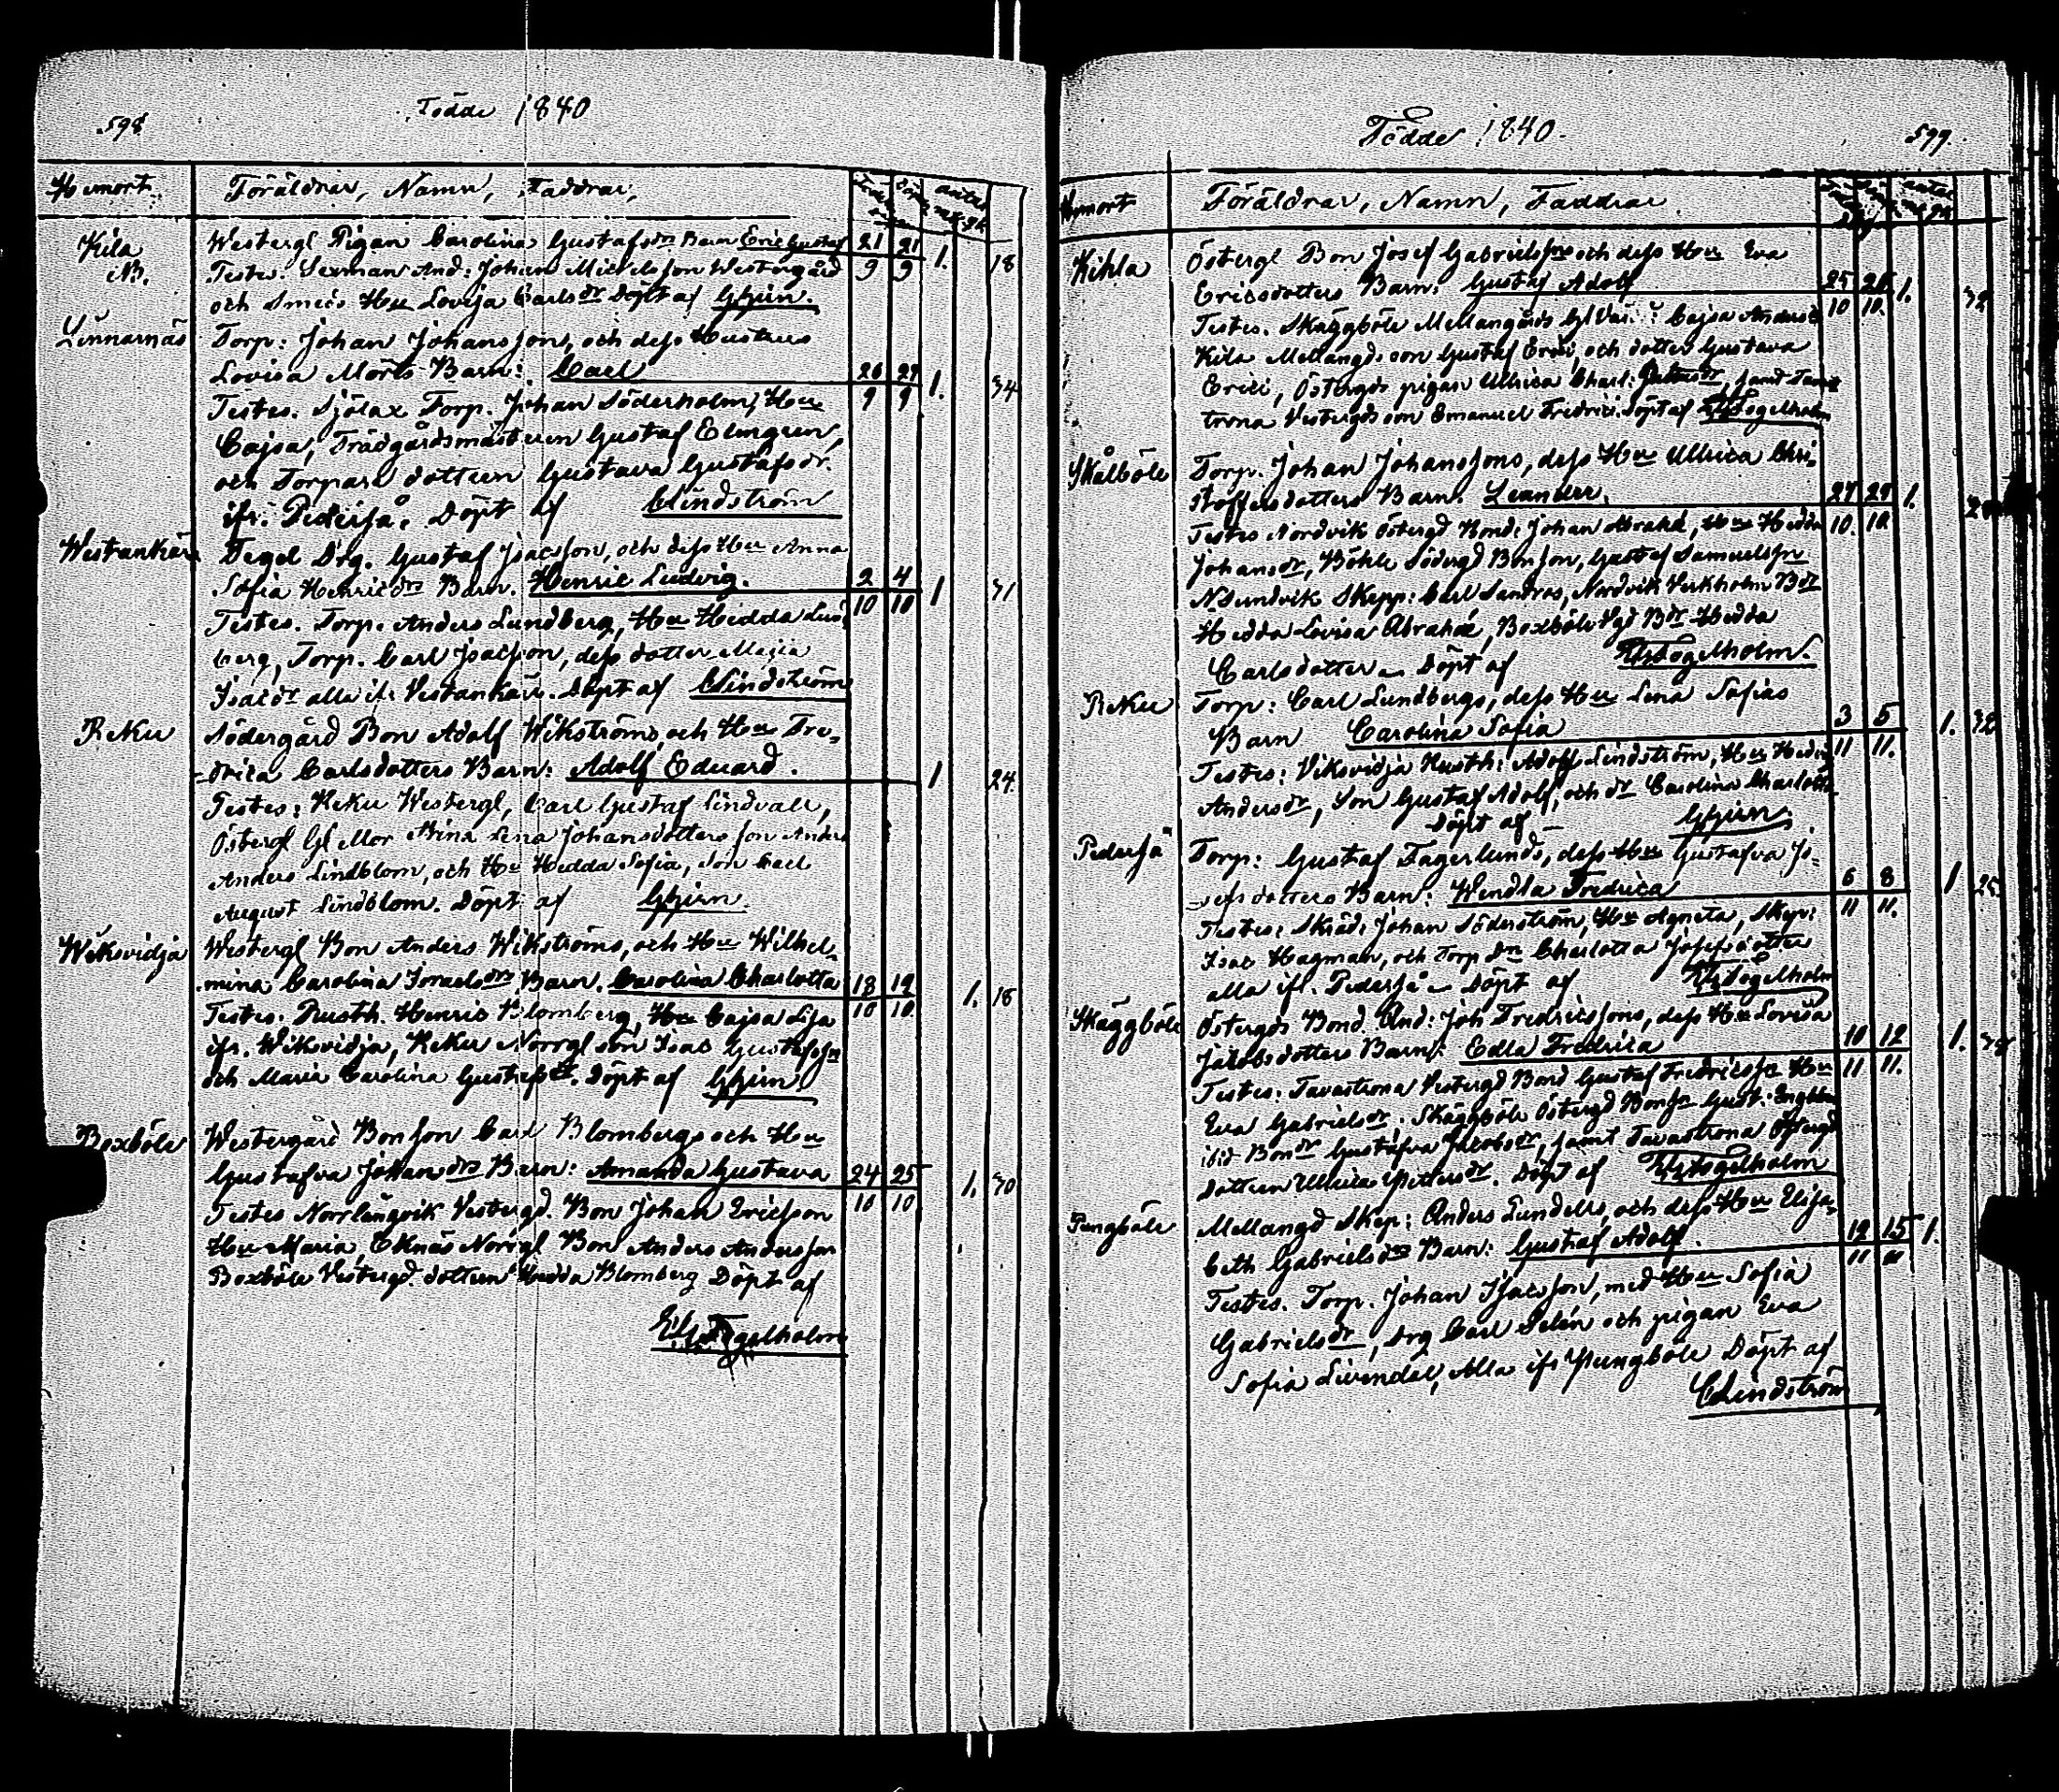 598
Födde 1840
Hemort
Föräldrar, Namn, Faddrar,
Kila
Westergl Pigan Carolina Gustafsdrs Barn Eric Gustaf 21 21 1. 18
Testes: Sexman And: Johan Mickelsson Westergård 9 9
och Hu Lovisa Carlsdr Döpt af
Lönnarnäs
Torp: Johan Johanssons, och dess Hustrus
Lovisa Mörts Barn: Carl 26 27 1. 34
Testes. Sjölax Torp. Johan Söderholm, Hu 9 9
Cajsa, Trädgårdsmästeren Gustaf Elmgren,
och Torpare dottren Gustava Gustafsdr.
ifr. Pedersjå. Döpt af CLindström
Westankärr
Tegel Drg. Gustaf Isacsson, och dess Hu Anna
Sofia Henricdrs Barn. Henric Ludvig. 2 4 1 31
Testes. Torp. Anders Lundberg, Hu Hedda Lund 10 10
berg, Torp. Carl Isacsson, dess dotter Maria
Isacdr alla ifr Vestankärr. Döpt af CLindström
Reku
Södergård Bon Adolf Wikströms, och Hu Fre-
drica Carlsdotters Barn: Adolf Eduard. 1 24.
Testes: Reku Westergl, Carl Gustaf Lindvall,
Östergl Gl Mor Stina Lena Johansdotters son Anders
Anders Lindblom, och Hu Hedda Sofia, Son Carl
August Lindblom. Döpt af
Wiksvidja
Westergl Bon Anders Wikströms, och Hu Wilhel-
mina Carolina Israelsdrs Barn. Carolina Charlotta 18 19 1. 18
Testes. Rusth. Henric Blomberg, Hu Cajsa Lisa 10 10
ifr. Wiksvidja, Reku Norrgl son Isac Gustafsson
och Maria Carolina Gustafsdr. Döpt af
Boxböle
Westergård Bonson Carl Blombergs och Hu
Gustafva Johansdrs Barn: Amanda Gustava 24 25 1. 30
Testes Norrlångvik Vestergd. Bon Johan Ericsson 10 10
Hu Maria, Eknäs Norrgl Bon Anders Andersson
Boxböle Vestergd. dottren Hedda Blomberg Döpt af
Fogelholm
Födde 1840.
599.
Hemort
Föräldrar, Namn, Faddrar
Kihla
Östergl Bon Josef Gabrielssons och dess Hu Eva
Ericsdotters Barn: Gustaf Adolf 25 26 1. 32
Testes. Skäggböle Mellangårds Cajsa Andersdr 10 10.
Kila Mellangds son Gustaf Erici, och dotter Gustava
Erici, Östergds pigan Ullrica Charl: samt Tavas
trona Vestergds son Emanuel Fredrici. Döpt af Fogelholm
Skålböle
Torp. Johan Johanssons, dess Hu Ullrica Chri-
stoffersdotters Barn. Leander. 27 29 1.
Testes Nordvik Östergd Bond: Johan Abrahd, Hu Hedda 10. 10
Johansdr, Böhle Södergd Bonson, Gustaf Samuelssn
N Sundvik Skepp: Carl Sandros, Nordvik Verkholm Bdr
Hedda Lovisa Abrahd, Boxböle Vgd Bdr Hedda
Carlsdotter. Döpt af Fogelholm.
Reku
Torp: Carl Lundbergs, dess Hu Lena Sofias
Barn Carolina Sofia 3 5 1. 32
Testes: Viksvidja Rusth: Adolf Lindström, Hu Hedvig 11 11.
Andersdr, Son Gustaf Adolf, och dr Carolina Charlotta
Döpt af
Pedersjå
Torp: Gustaf Fagerlunds, dess Hu Gustafva Jo-
sefsdotters Barn: Wendla Fredrica 6 8 1 25
Testes: Skräd: Johan Söderström, Hu Agneta, Skep: 11 11.
Isac Hagman, och Torp dr Charlotta Josefsdotter
alla ifr. Pedersjå. Döpt af Fogelholm
Skäggböle
Östergds Bond. And: Joh Fredricssons, dess Hu Lovisa
Jakobsdotters Barn: Edla Fredrica 10 12 1.
Testes: Tavastrona Vestergd Bond Gustaf Fredricssn Hu 11 11.
Eva Gabrielsdr, Skäggböle Östergd Bonsn Gust.
ibid Bondr Gustafva Jacobsdr, samt Tavastrona Östergd
Dottren Ullrica Pettersdr. Döpt af Fogelholm
Pungböle
Mellangd Skep: Anders Lundells, och dess Hu Elisa-
beth Gabrielsdrs Barn: Gustaf Adolf. 12 15 1.
Testes. Torp. Johan Isacsson, med Hu Sofia 11 11
Gabrielsdr, Drg Carl Selén och pigan Eva
Sofia Livendal, Alla ifr Pungböle Döpt af
CLindström